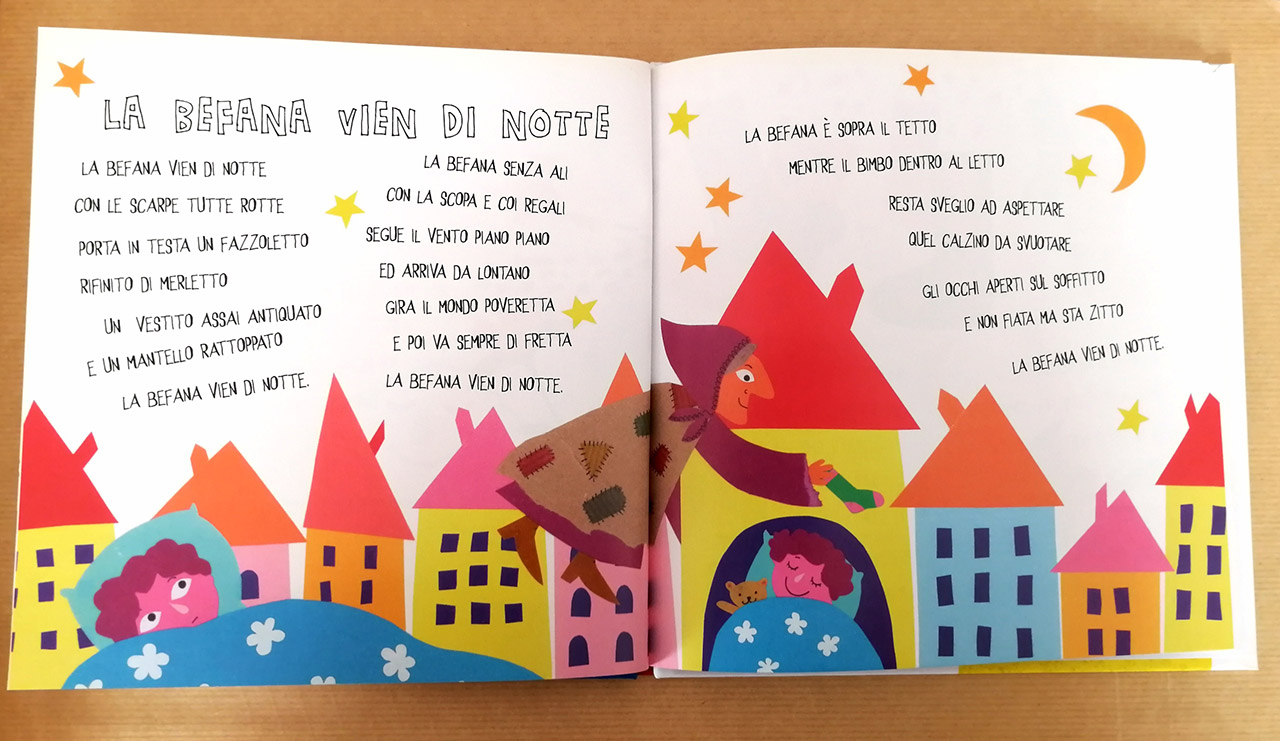 LA BEFANA VIEN DI NOTTE
LA BEFANA VIEN DI NOTTE
CON LE SCARPE TUTTE ROTTE
PORTA IN TESTA UN FAZZOLETTO
RIFINITO DI MERLETTO
UN VESTITO ASSAI ANTIQUATO
E UN MANTELLO RATTOPPATO
LA BEFANA VIEN DI NOTTE.
LA BEFANA SENZA ALI
CON LA SCOPA E COI REGALI
SEGUE IL VENTO PIANO PIANO
ED ARRIVA DA LONTANO
GIRA IL MONDO POVERETTA
E POI VA SEMPRE DI FRETTA
LA BEFANA VIEN DI NOTTE.
LA BEFANA È SOPRA IL TETTO
MENTRE IL BIMBO DENTRO AL LETTO
RESTA SVEGLIO AD ASPETTARE
QUEL CALZINO DA SVUOTARE
GLI OCCHI APERTI SUL SOFFITTO
E NON FIATA MA STA ZITTO
LA BEFANA VIEN DI NOTTE.